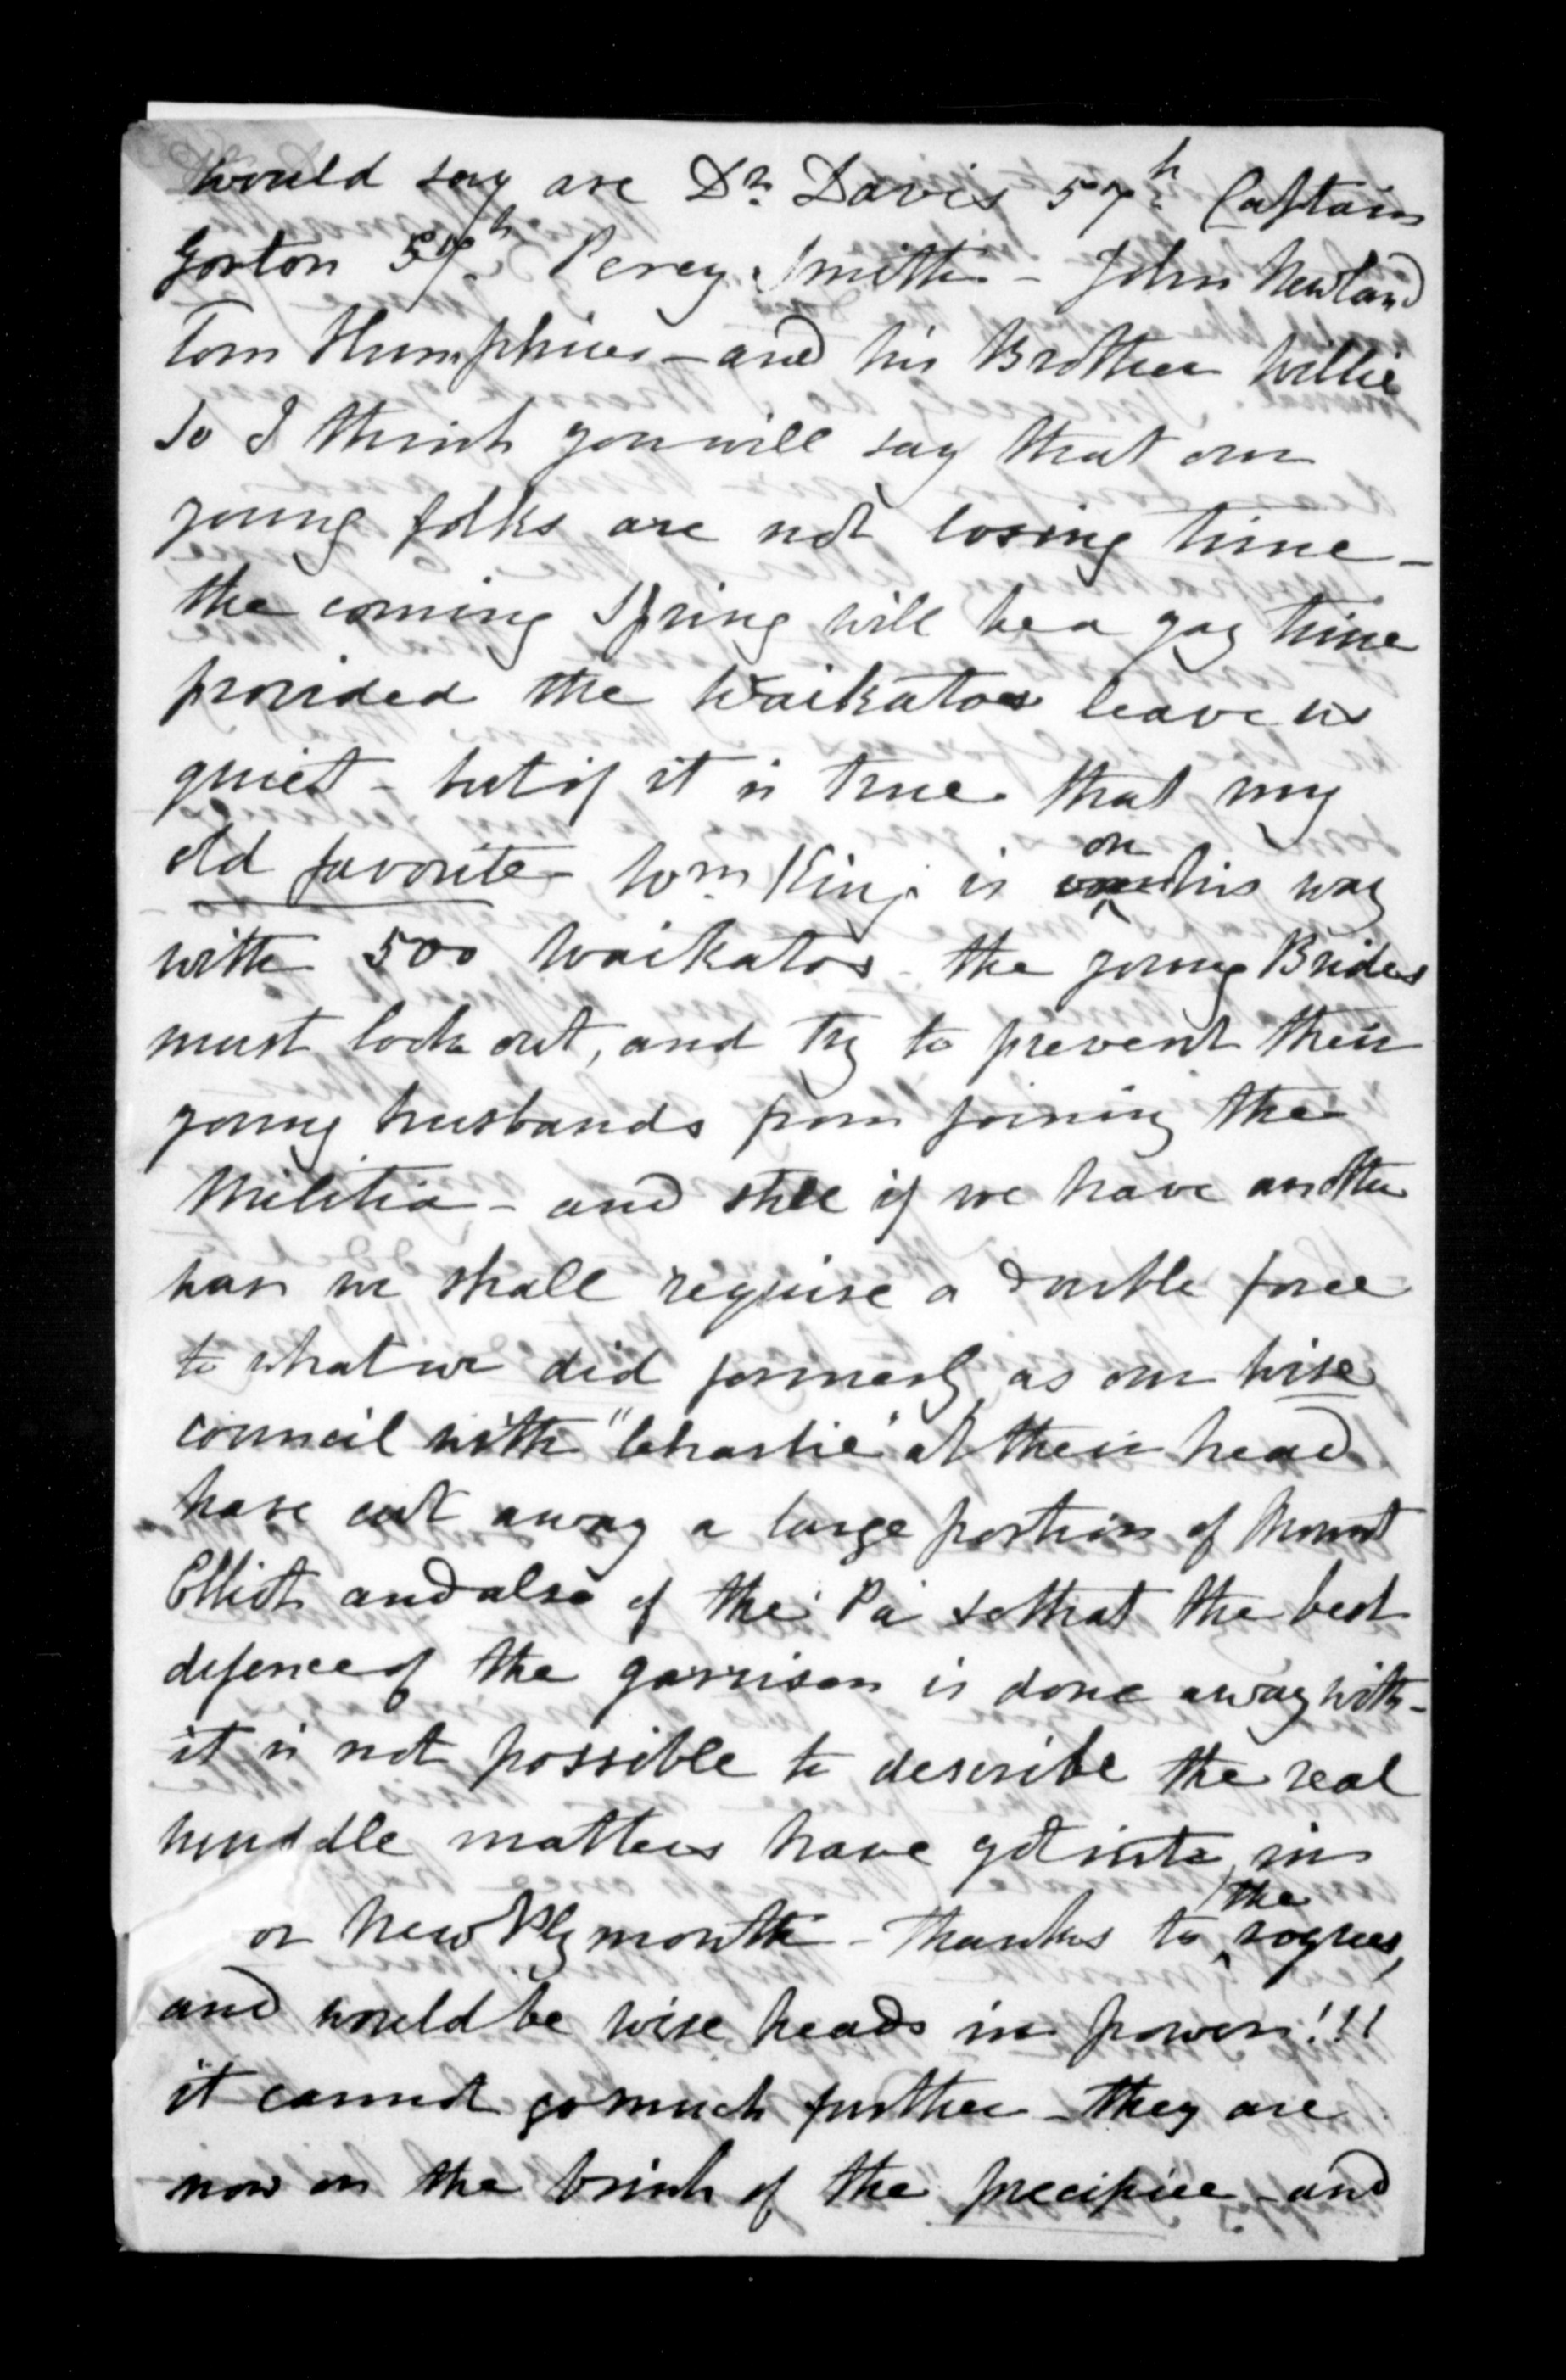 would say are Dr. Davis 57th. Captain
Gorton 57th. Percy Smith - John Newland
Tom Humphries - and his Brother Willie
so I think you will say that our
young folks are not losing time -
the coming Spring will be a gay time
provided the Waikatos leave us
quiet - but if it is true that my
old favorite - Wm. King is on his way
with 500 Waikatos - the young Brides
must look out, and try to prevent their
young husbands from joining the
Militia - and still if we have another
war we shall require a double force
to what we did formerly as our wise
council with "Charlie" at their head
have cut away a large portion of Mount
Elliot and also of the Pa so that the best
defence of the garrison is done away with -
it is not possible to describe the real
muddle matters have got into in
or New Plymouth - thanks to the rogues,
and would be wise heads in power!!!
it cannot go much further - they are
now on the brink of the precipice - and